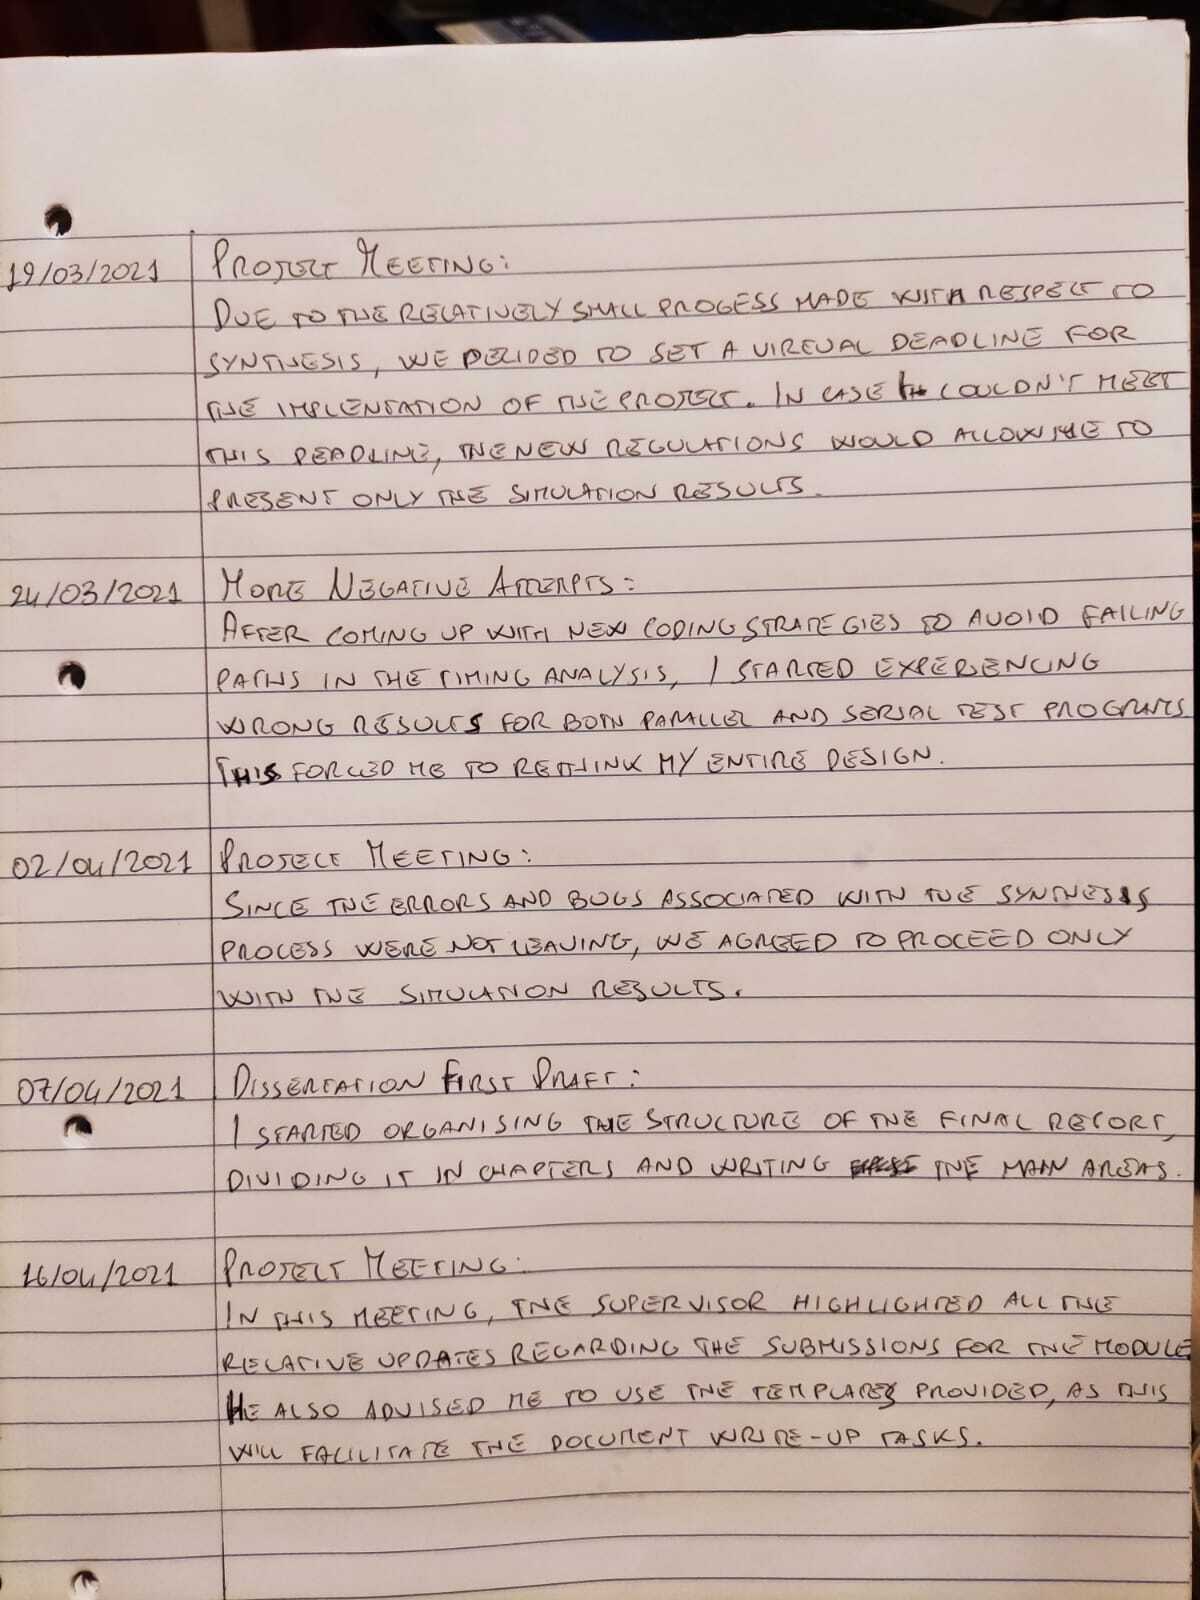 19/03/2021 PROJECT MEETING:
DUE TO THE RELATIVELY SMALL PROGESS MADE WITH RESPECT TO
SYNTHESIS, WE DECIDED TO SET A VIRTUAL DEADLINE FOR
THE IMPLENTATION OF THE PROJECT. IN CASE I COULDN'T MEET
THIS DEADLINE, THE NEW REGULATIONS WOULD ALLOW ME TO
PRESENT ONLY THE SIMULATION RESULTS.
24/03/2021 MORE NEGATIVE ATTEMPTS:
AFTER COMING UP WITH NEW CODING STRATEGIES TO AVOID FAILING
PATHS IN THE TIMING ANALYSIS, I STARTED EXPERIENCING
WRONG RESULTS FOR BOTH PARALLEL AND SERIAL TEST PROGRAMS
THIS FORCED ME TO RETHINK MY ENTIRE DESIGN.
02/04/2021 PROJECT MEETING:
SINCE THE ERRORS AND BUGS ASSOCIATED WITH THE SYNTHESIS
PROCESS WERE NOT LEAVING, WE AGREED TO PROCEED ONLY
WITH THE SIMULATION RESULTS.
07/04/2021 DISSERTATION FIRST DRAFT:
I STARTED ORGANISING THE STRUCTURE OF THE FINAL REPORT,
DIVIDING IT IN CHAPTERS AND WRITING THE MAIN AREAS.
16/04/2021 PROJECT MEETING:
IN THIS MEETING, THE SUPERVISOR HIGHLIGHTED ALL THE
RELATIVE UPDATES REGARDING THE SUBMISSIONS FOR THE MODULE
HE ALSO ADVISED ME TO USE THE TEMPLATES PROVIDED, AS THIS
WILL FACILITATE THE DOCUMENT WRITE-UP TASKS.